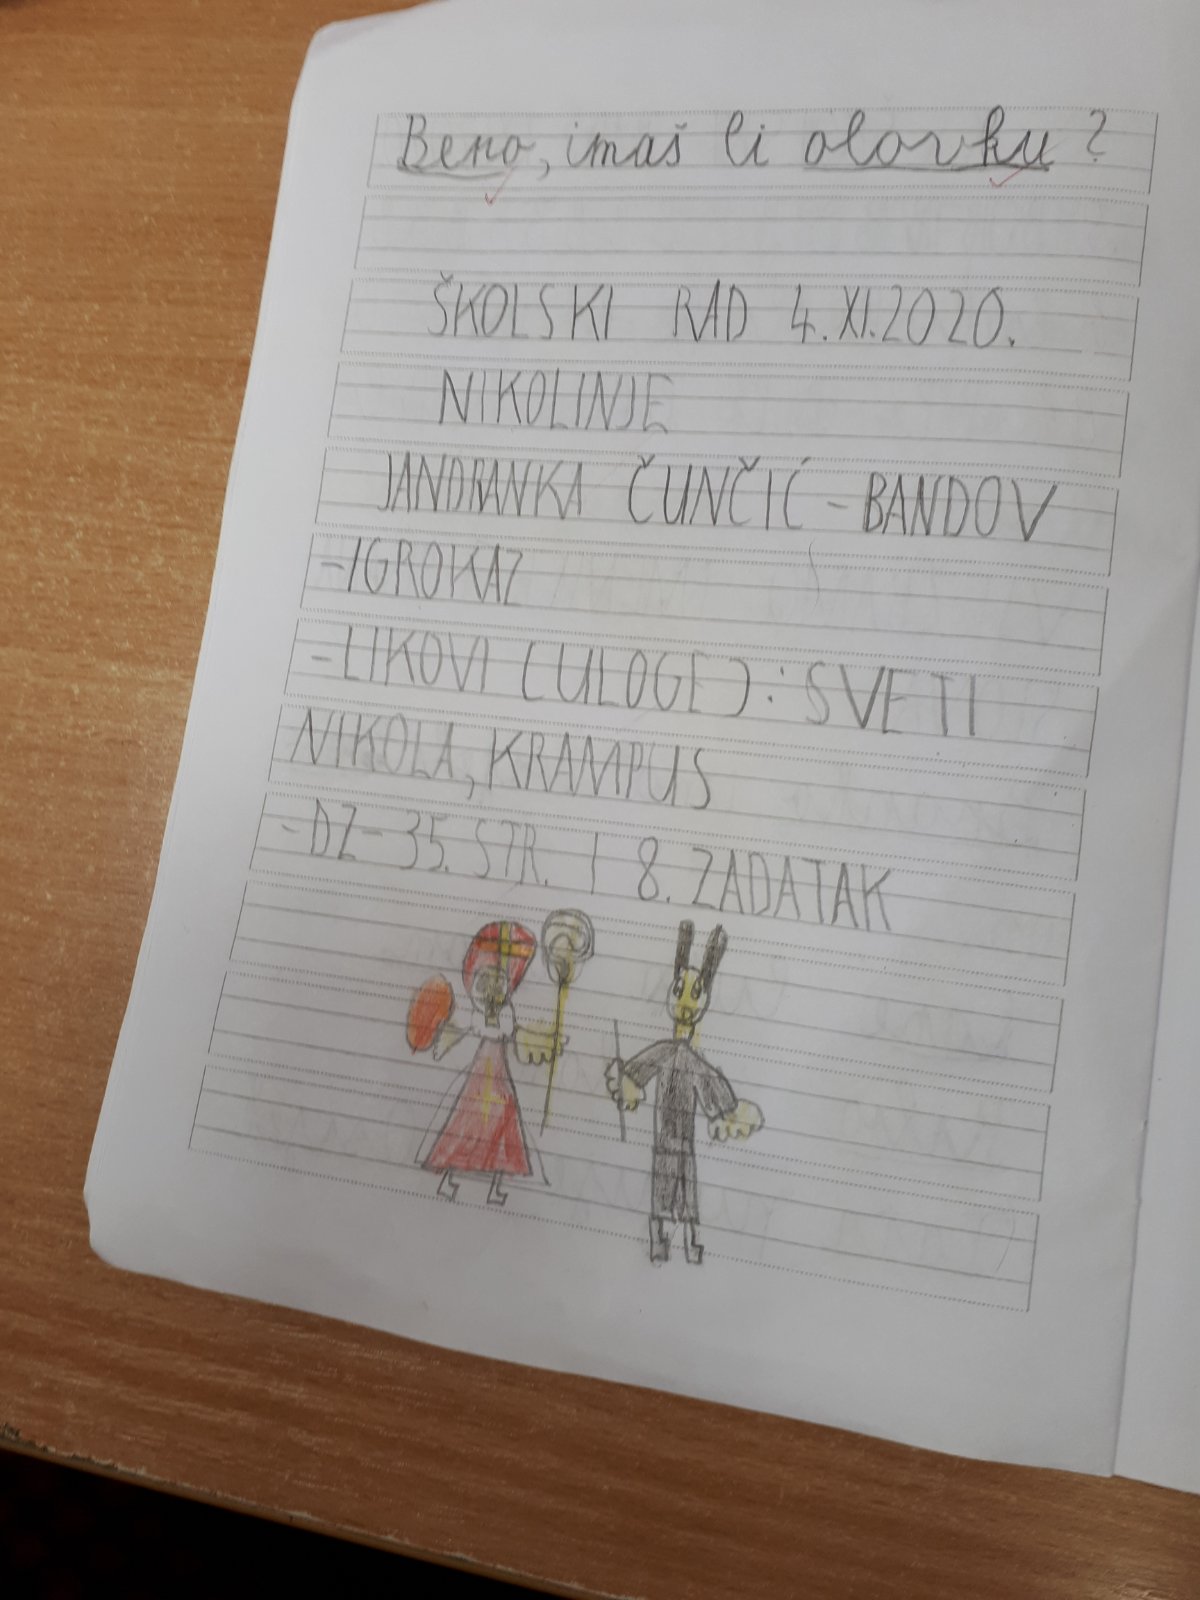 Beno, imaš li olovku?
ŠKOLSKI RAD 4.XI.2020.
NIKOLINJE
JANDRANKA ČUNČIĆ-BANDOV
-IGROKAZ
-LIKOVI (ULOGE): SVETI
NIKOLA, KRAMPUS
-DZ-35. STR. / 8. ZADATAK